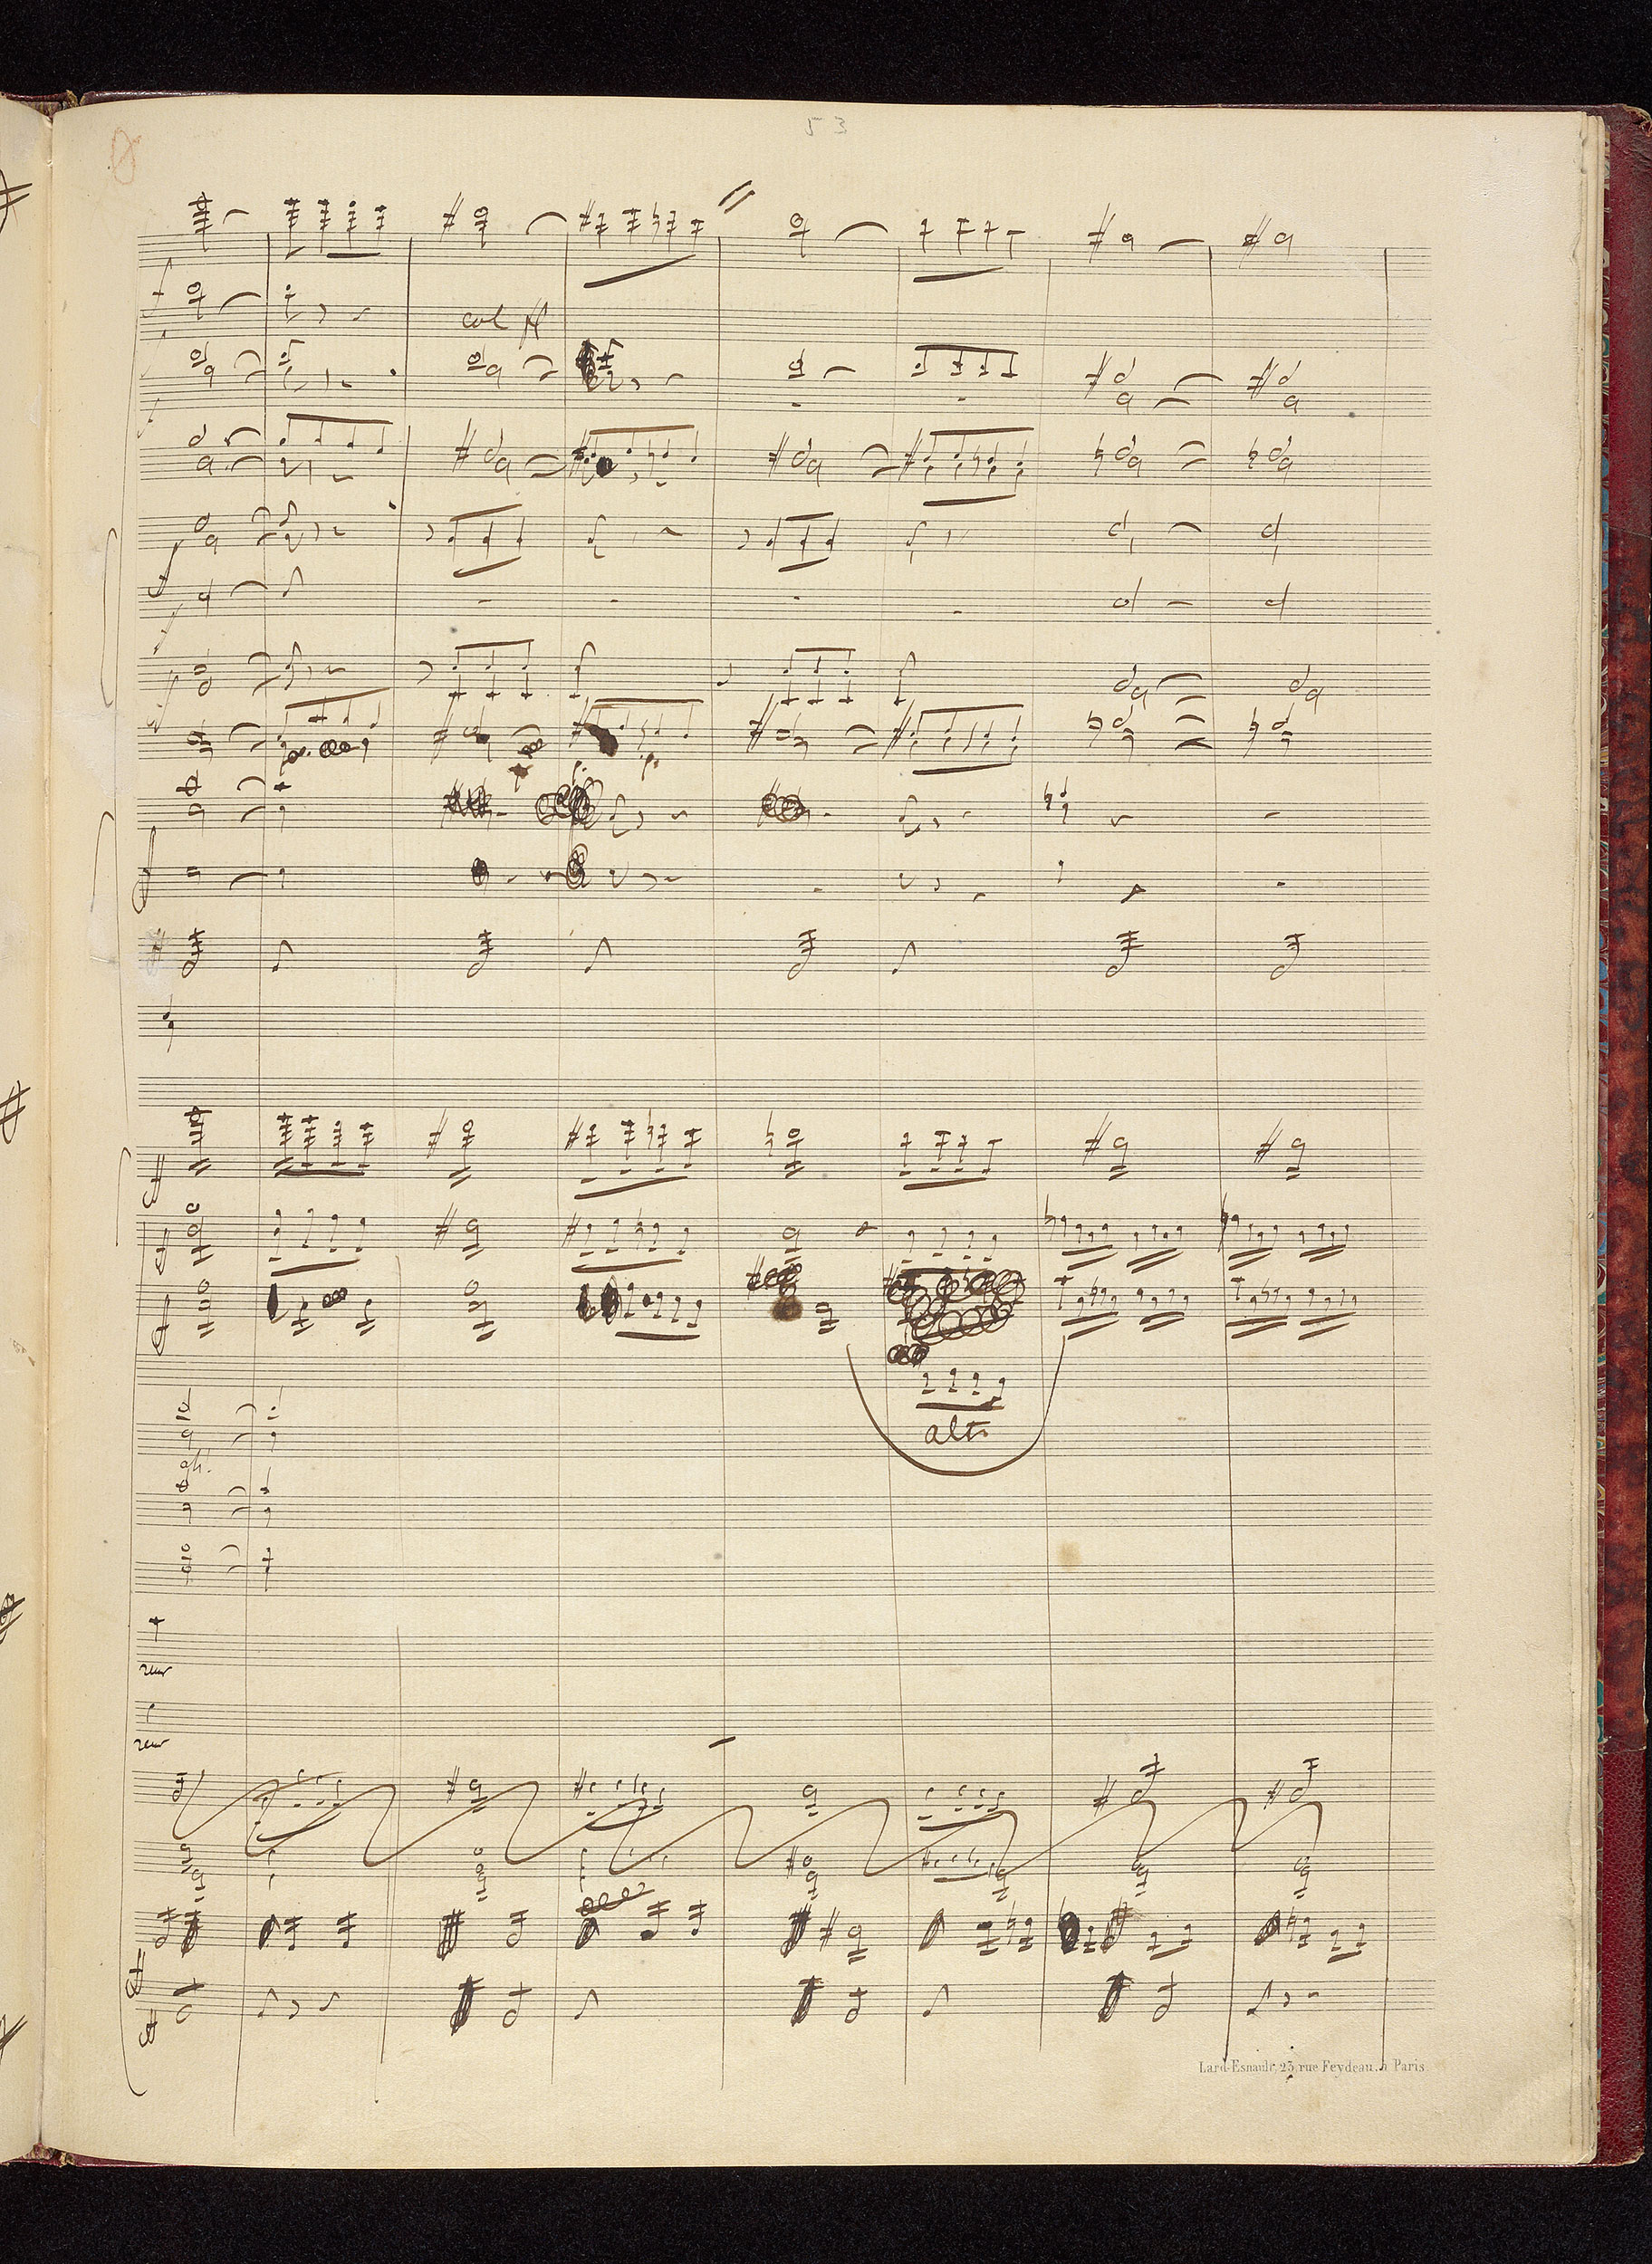 53
col
ah.
alti
Lard-Esnault, 25, rue Feydeau, à Paris